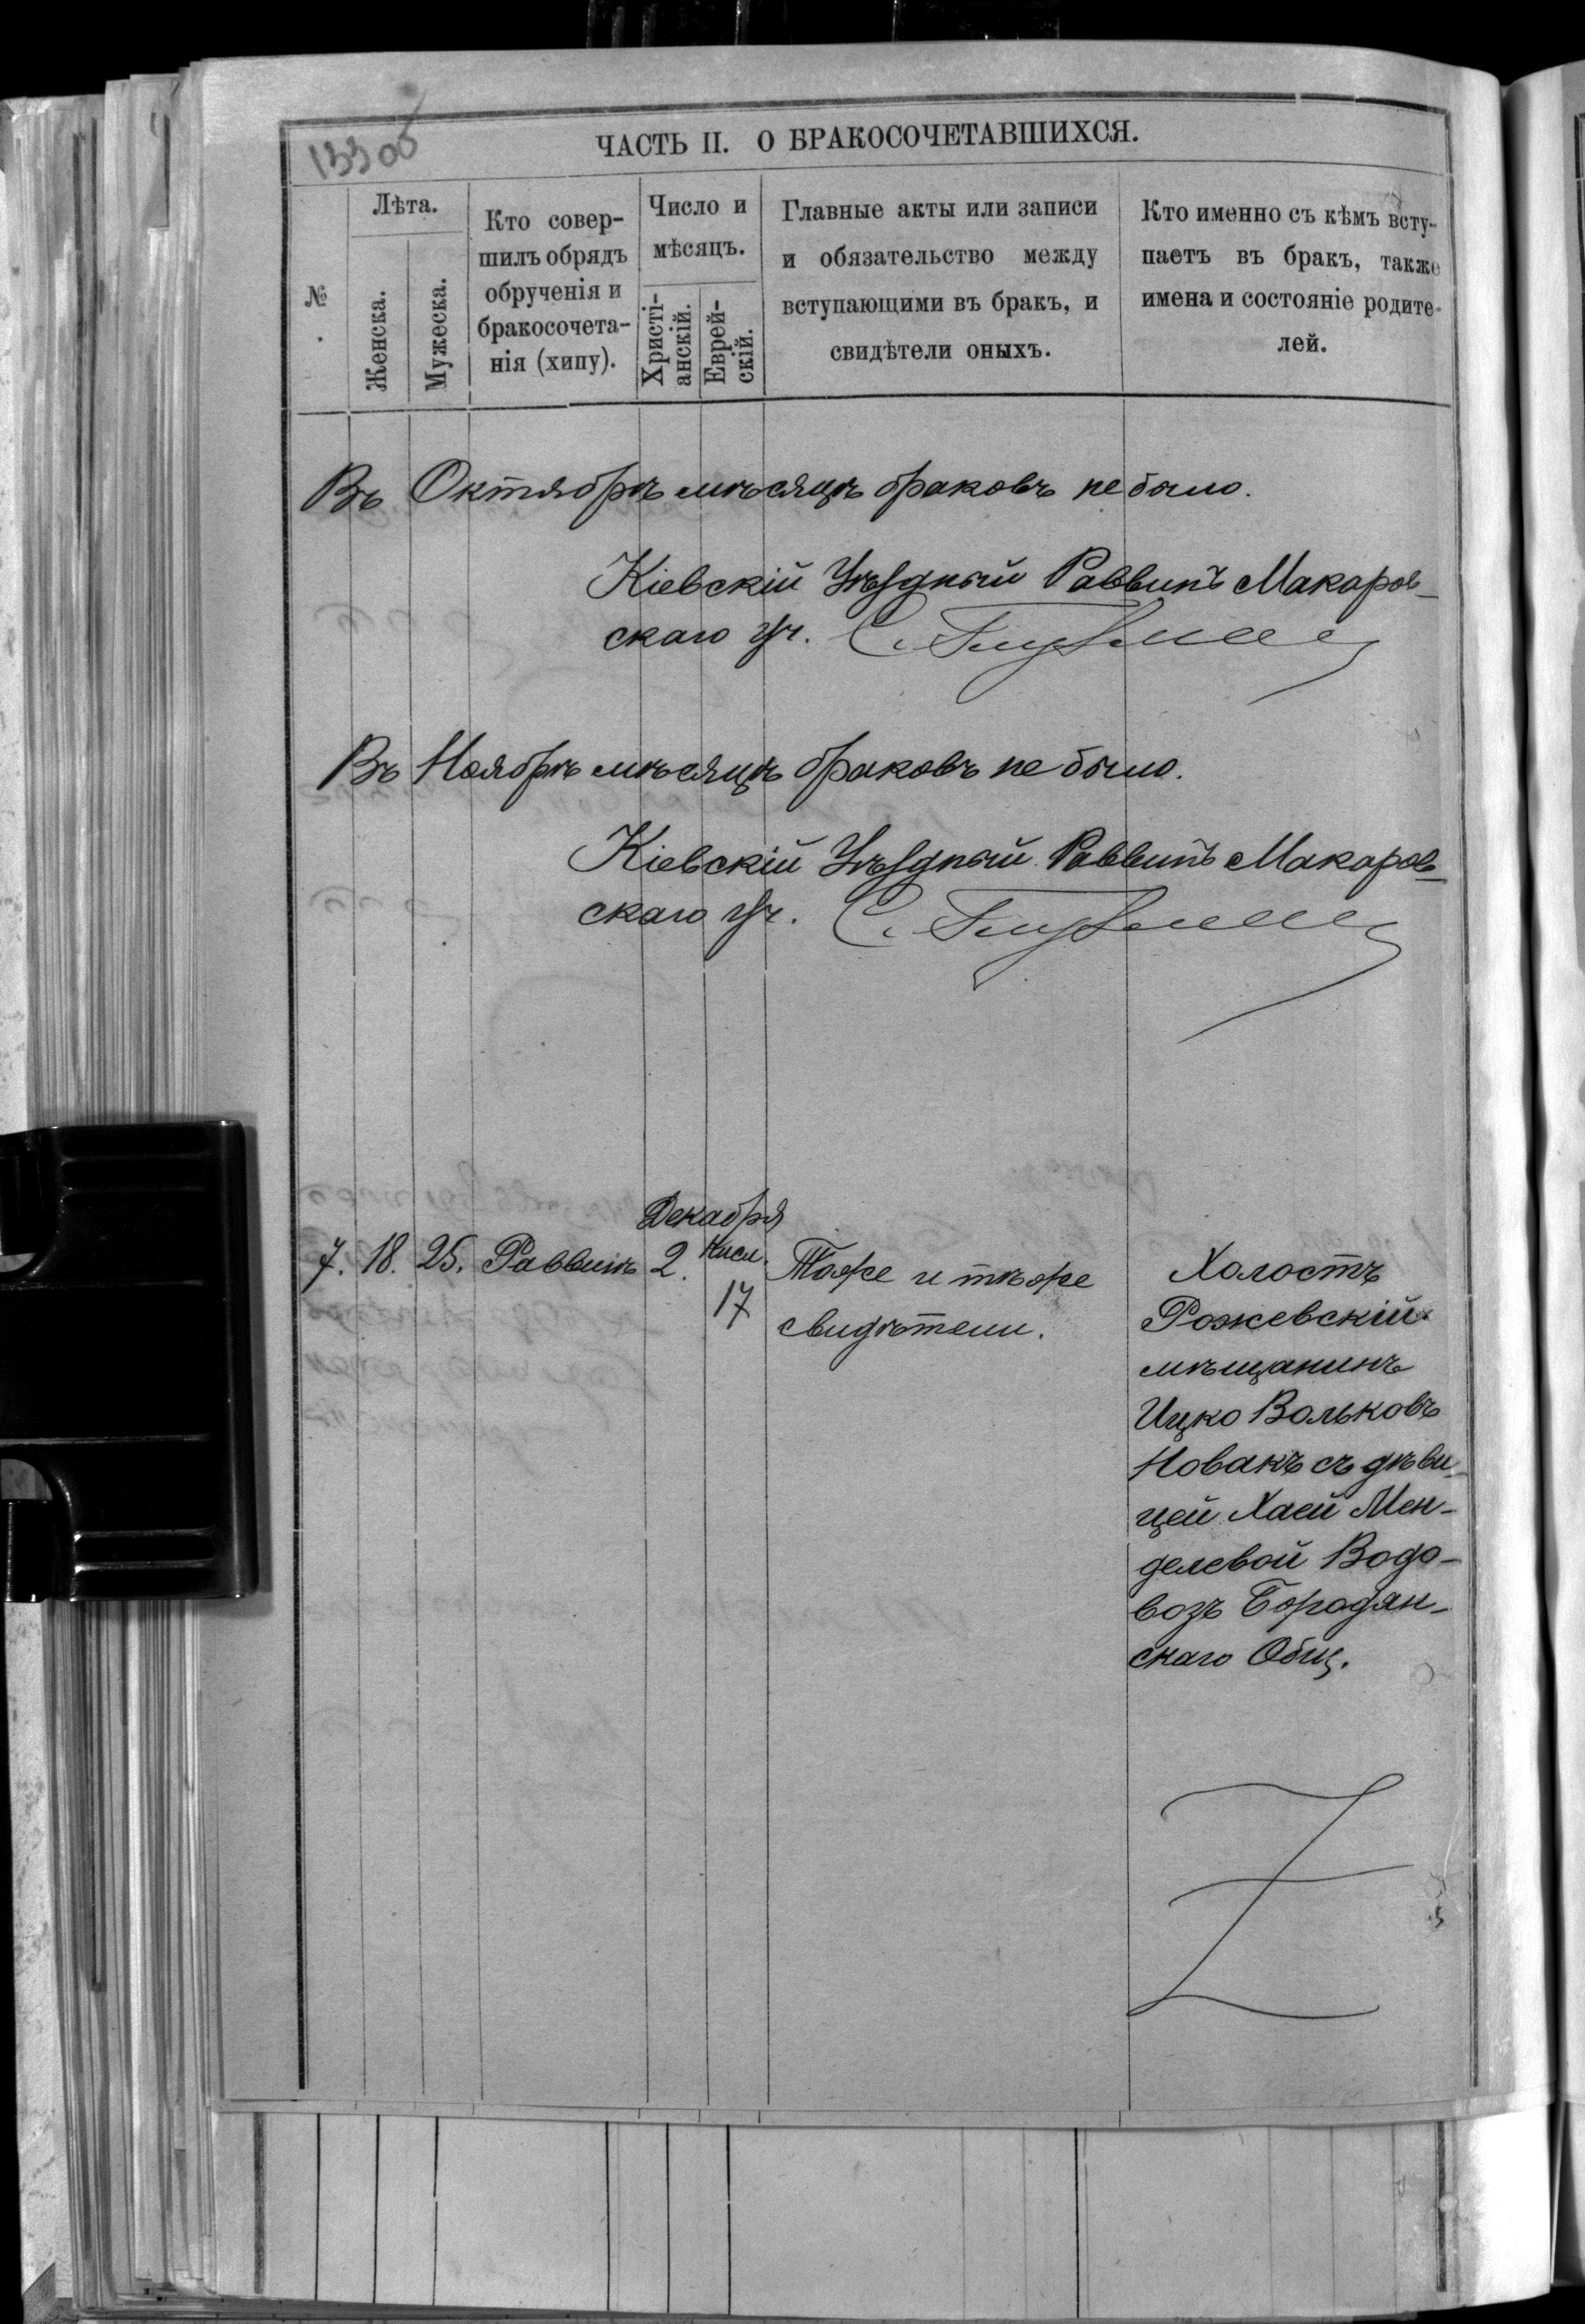 133об
ЧАСТЬ II. О БРАКОСОЧЕТАВШИХСЯ.
№
Лѣта.
Женска.
Мужеска.
Кто совер-
шилъ обрядъ
обрученія и
бракосочета-
нія (хипу).
Число и
мѣсяцъ.
Христі-
анскій.
Еврей-
скій.
Главные акты или записи
и обязательство между
вступающими въ бракъ, и
свидѣтели оныхъ.
Кто именно съ кѣмъ всту-
паетъ въ бракъ, также
имена и состояніе родите-
лей.
Въ Октябрѣ мѣсяцѣ браковъ не было.
Кіевскій Уѣздный Раввинъ Макаров-
скаго уч. С.
Въ Ноябрѣ мѣсяцѣ браковъ не было.
Кіевскій Уѣздный Раввинъ Макаров-
скаго уч. С.
Декабря
7. 18. 25. Раввинъ 2. Кисл. 17
Тоже и тѣже
свидѣтели.
Холостъ
Рожевскій
мѣщанинъ
Ицко Вольковъ
Новакъ съ дѣви-
цей Хаей Мен-
делевой Водо-
возъ Бородян-
скаго Общ.